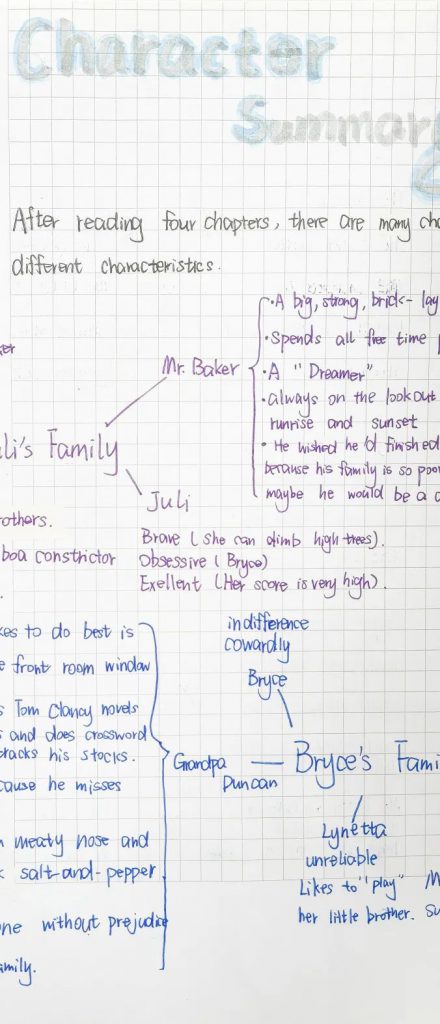 Character
Summar
After reading four chapters, there are many cha
different characteristics.
• A big, strong, brick-lay
• Spends all free time
Mr. Baker
• A "Dreamer"
• always on the lookout
runrise and sunset
• He wished he'd finished
li's Family
because his family is so poor
maybe he would be a
Juli
rothers.
Brave (she can climb high trees).
boa constrictor
Obsessive (Bryce)
Exellent (Her score is very high).
kes to do best is
e front room window
s Tom Clancy novels
s and does crossword
tracks his stocks.
cause he misses
meaty nose and
salt-and-pepper
one without prejudice
amily.
indifference
cowardly
Bryce
Grandpa
Duncan
Bryce's Fami
Lynetta
unreliable
Likes to "play"
her little brother. su